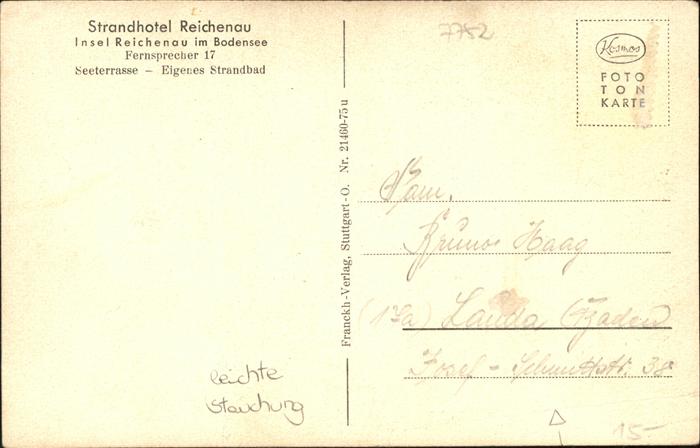 Strandhotel Reichenau
Insel Reichenau im Bodensee
Fernsprecher 17
Seeterrasse — Eigenes Strandbad
7752
Kosmos
FOTO
TON
KARTE
Franckh-Verlag, Stuttgart-O. Nr. 21460-75 u
Fam.
Bruno Haag
(17a) Lauda (Baden
Josef-Schmittstr. 38
leichte
Stauchung
15-